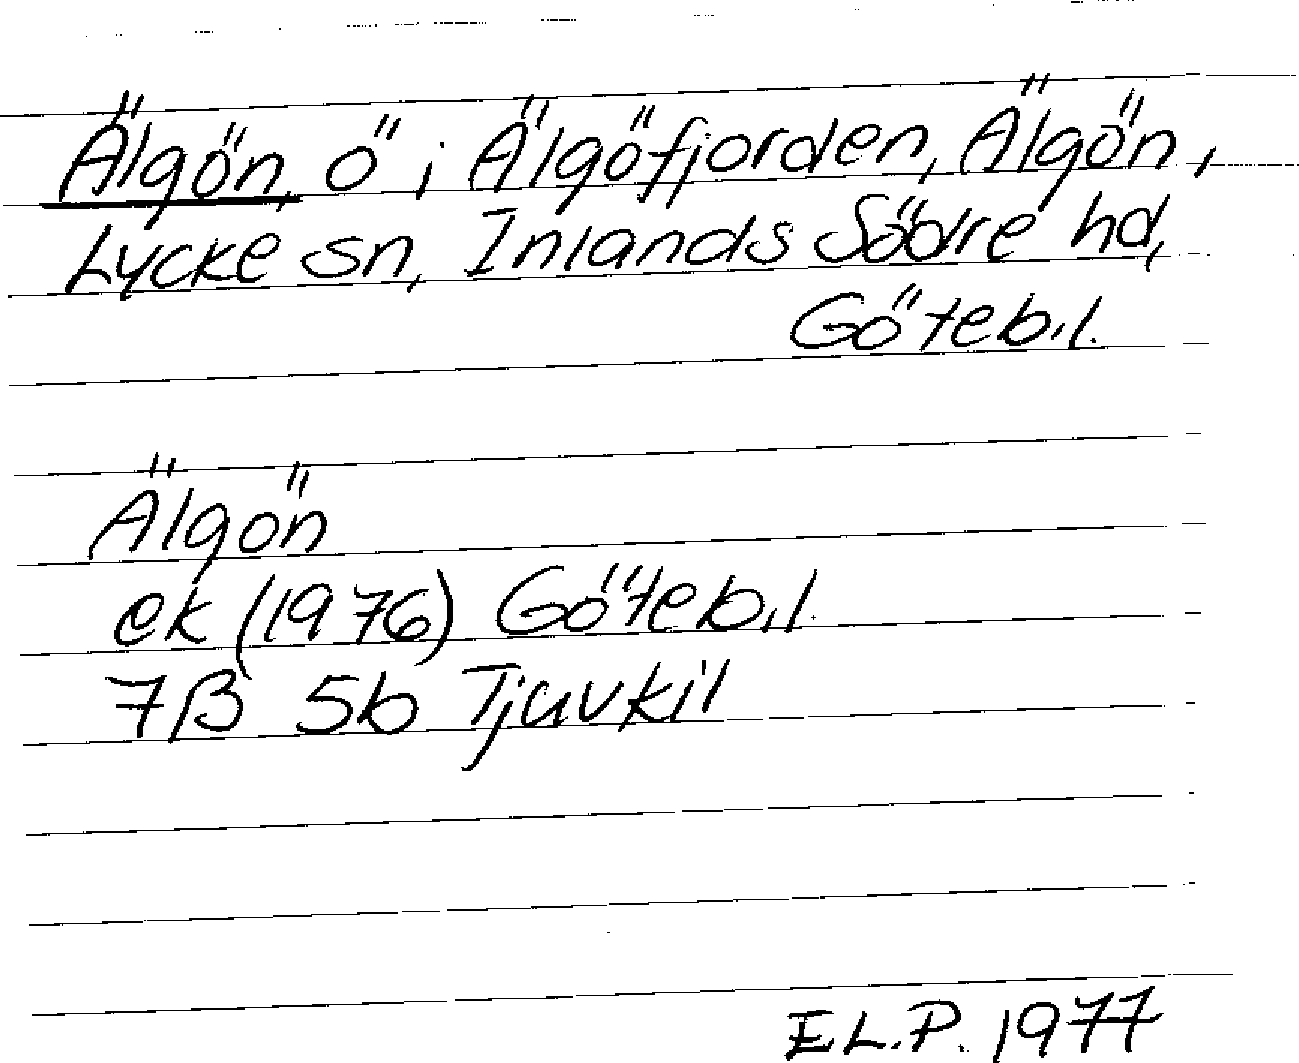 Älgön, ö i Älgöfjorden, Älgön,
Lycke sn, Inlands Södre hd,
Göteb.l.
Älgön
ek (1976) Göteb.l.
7B 5b Tjuvkil
E L.P. 1977